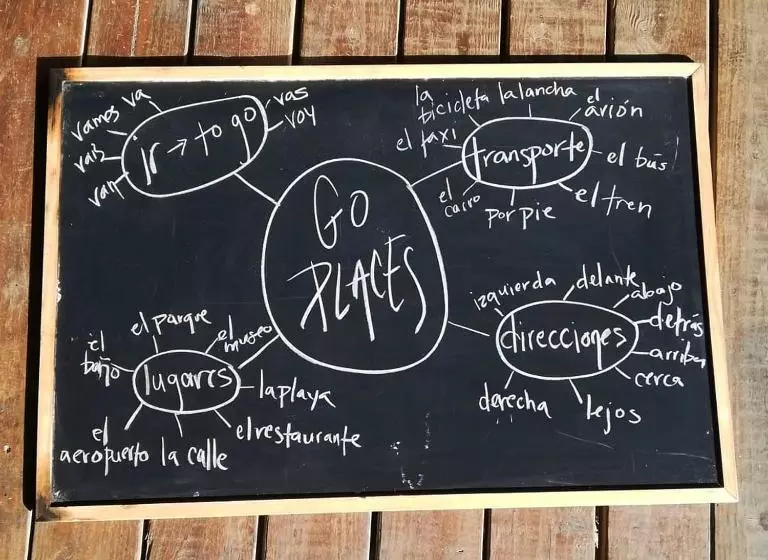 GO
PLACES
Ir → to go
voy
vas
va
vamos
vais
van
transporte
el taxi
la
bicicleta
la lancha
el
avión
el bus
el tren
por pie
el
carro
direcciones
izquierda
delante
abajo
detrás
arriba
cerca
lejos
derecha
lugares
el
baño
el parque
el
museo
la playa
el restaurante
la calle
el
aeropuerto